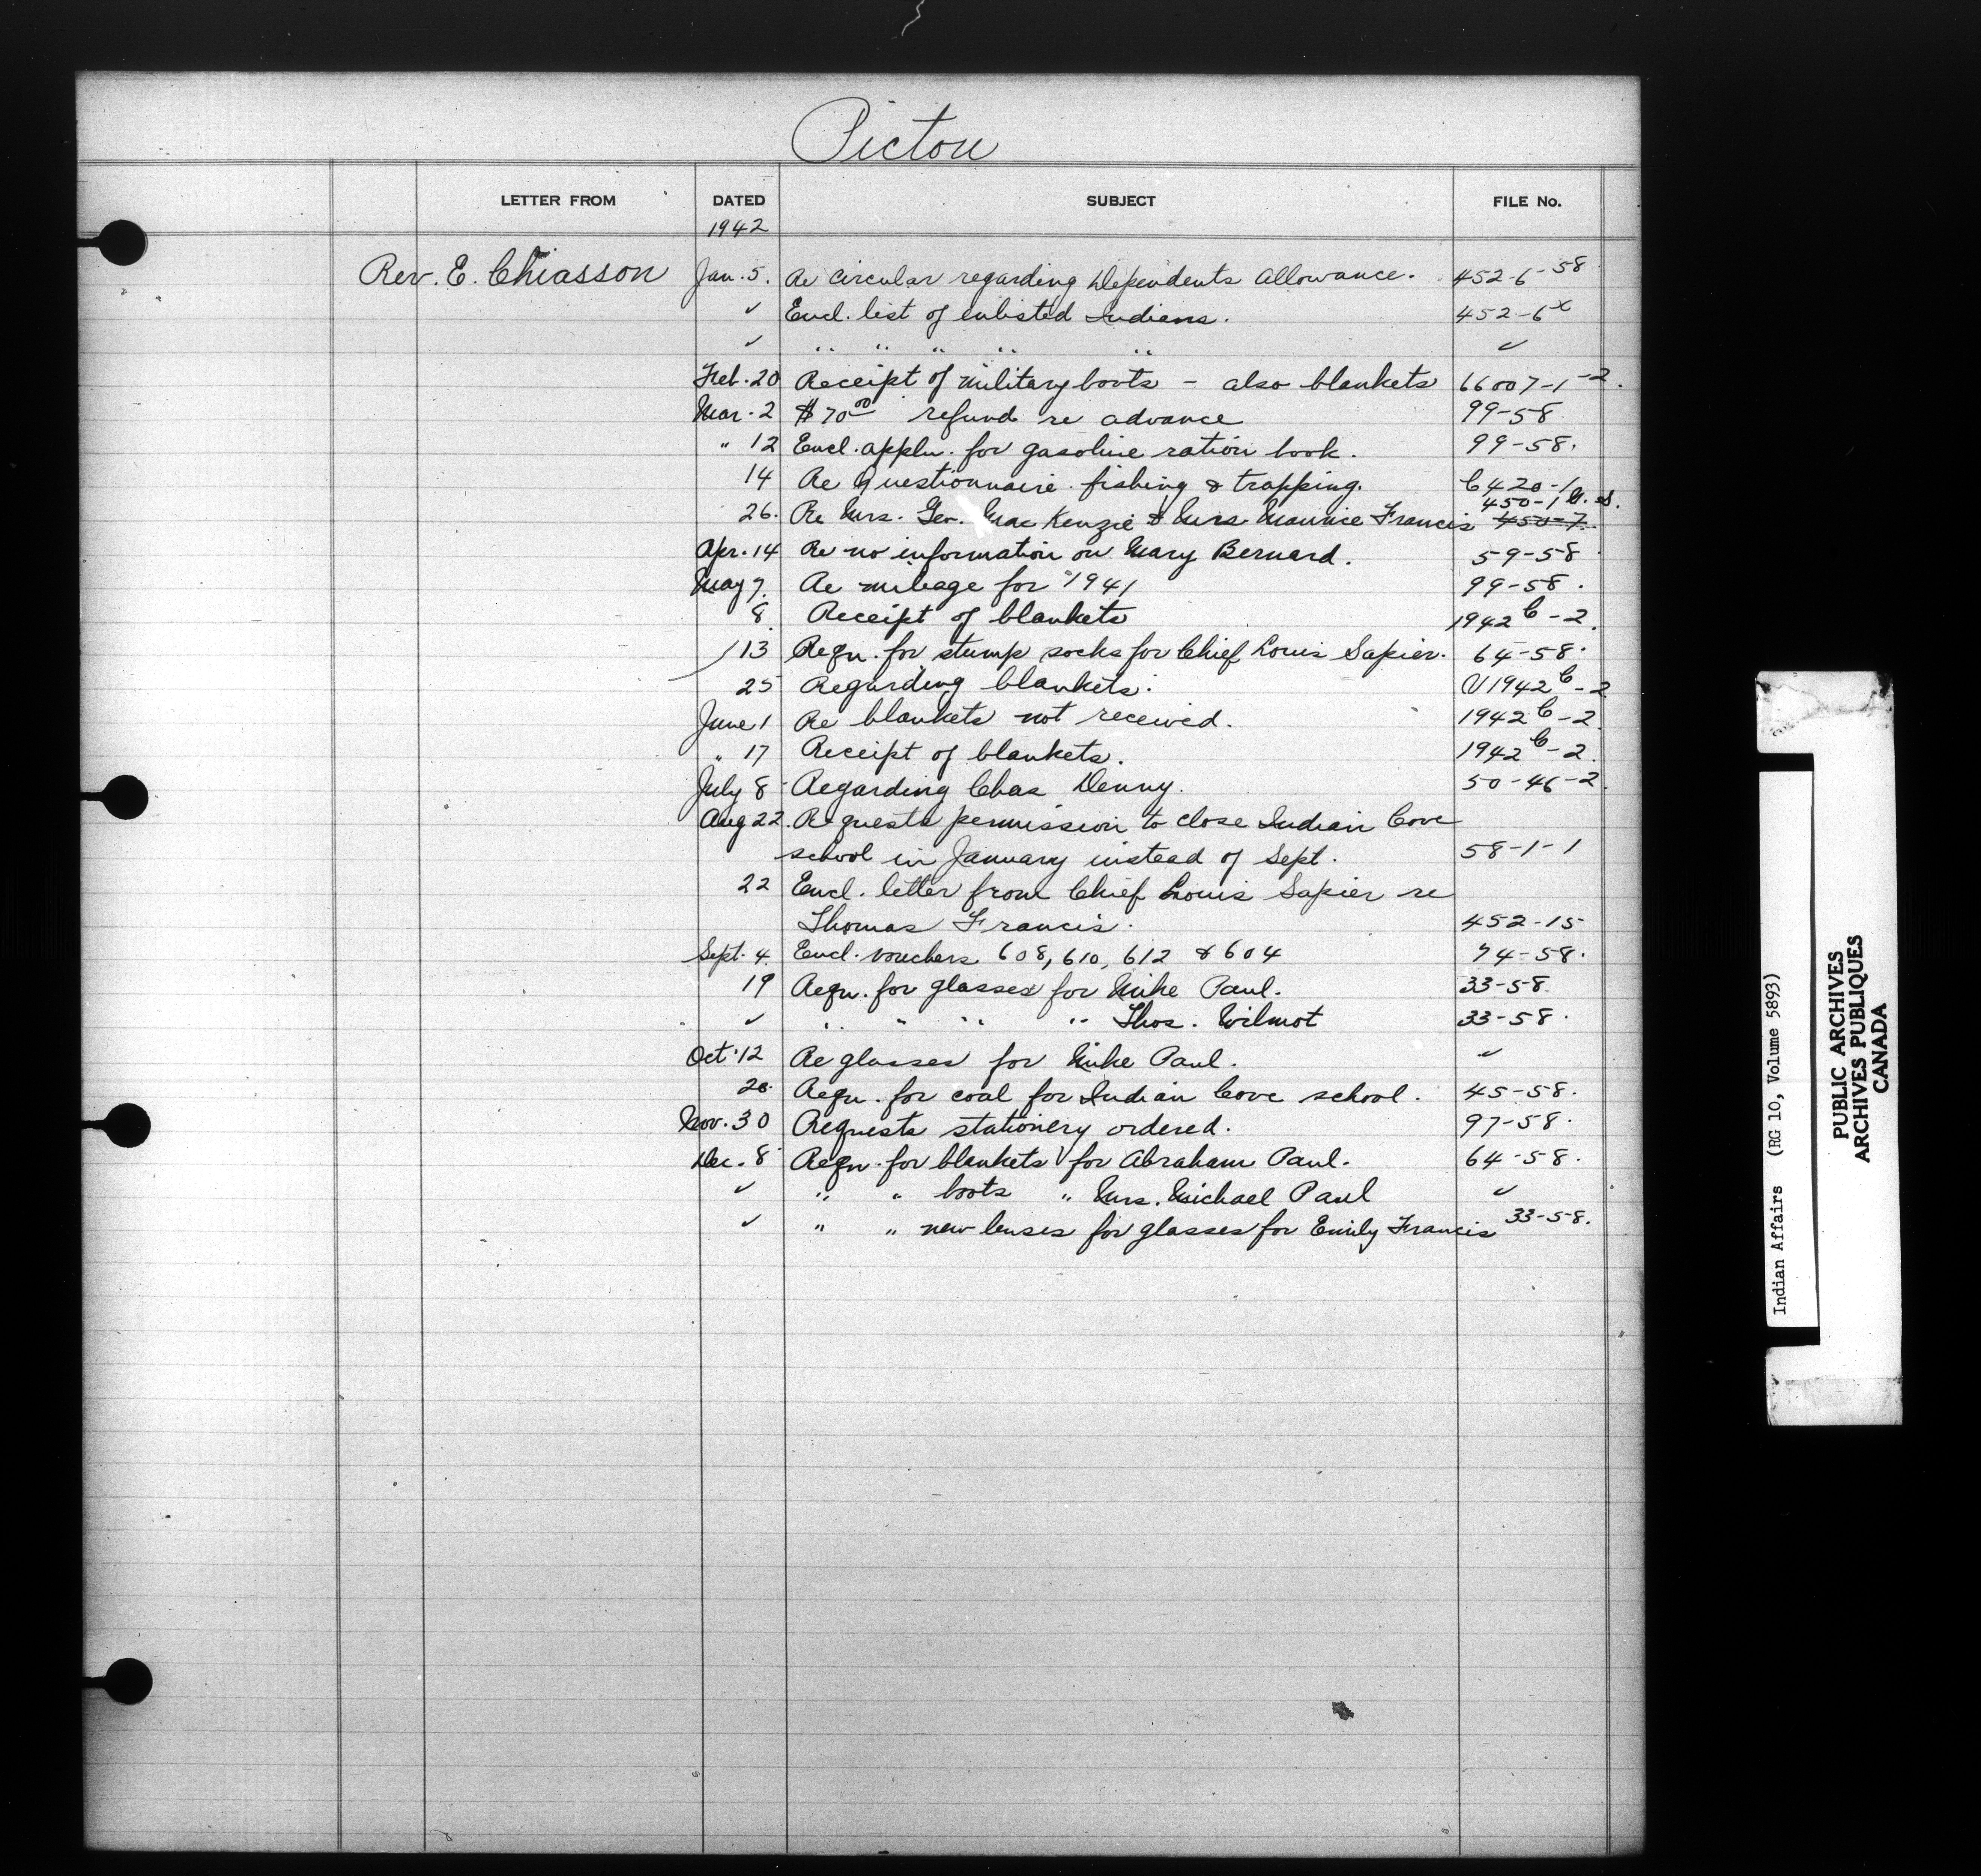 Pictou
LETTER FROM DATED SUBJECT FILE No.
1942
Rev. E. Chiasson Jan. 5. Re circular regarding Dependents allowance. 452-6-58
✓ Encl. list of enlisted Indians. 452-6x
✓ " " " " " ✓
Feb. 20 Receipt of military boots - also blankets 66007-1-2.
Mar. 2 $70.00 refund re advance 99-58
" 12 Encl. appln. for gasoline ration book. 99-58.
14 Re Questionnaire fishing & trapping. C420-1
450-1
26. Re Mrs. Geo. MacKenzie & Mrs. Maurice Francis 450-7.
Apr. 14 Re no information on Mary Bernard. 59-58
May 7. Re mileage for 1941 99-58.
8. Receipt of blankets 1942 C-2.
13 Reqn. for stump socks for Chief Louis Sapier. 64-58.
25 Regarding blankets. V1942 C-2
June 1 Re blankets not received. 1942 C-2.
" 17 Receipt of blankets. 1942 C-2.
July 8 Regarding Chas Denny. 50-46-2.
Aug 22. Requests permission to close Indian Cove
school in January instead of Sept. 58-1-1
22 Encl. letter from Chief Louis Sapier re
Thomas Francis. 452-15
Sept. 4. Encl. vouchers 608, 610, 612 & 604 74-58.
19 Reqn. for glasses for Mike Paul. 33-58.
✓ " " " " Thos. Wilmot 33-58.
Oct. 12 Re glasses for Mike Paul. ✓
Reqn. for coal for Indian Cove school. 45-58.
Nov. 30 Requests stationery ordered. 97-58.
Dec. 8 Reqn. for blankets for Abraham Paul. 64-58.
✓ " " boots " Mrs. Michael Paul ✓
✓ " " new lenses for glasses for Emily Francis 33-58.
Indian Affairs (RG 10, Volume 5893)
PUBLIC ARCHIVES
ARCHIVES PUBLIQUES
CANADA